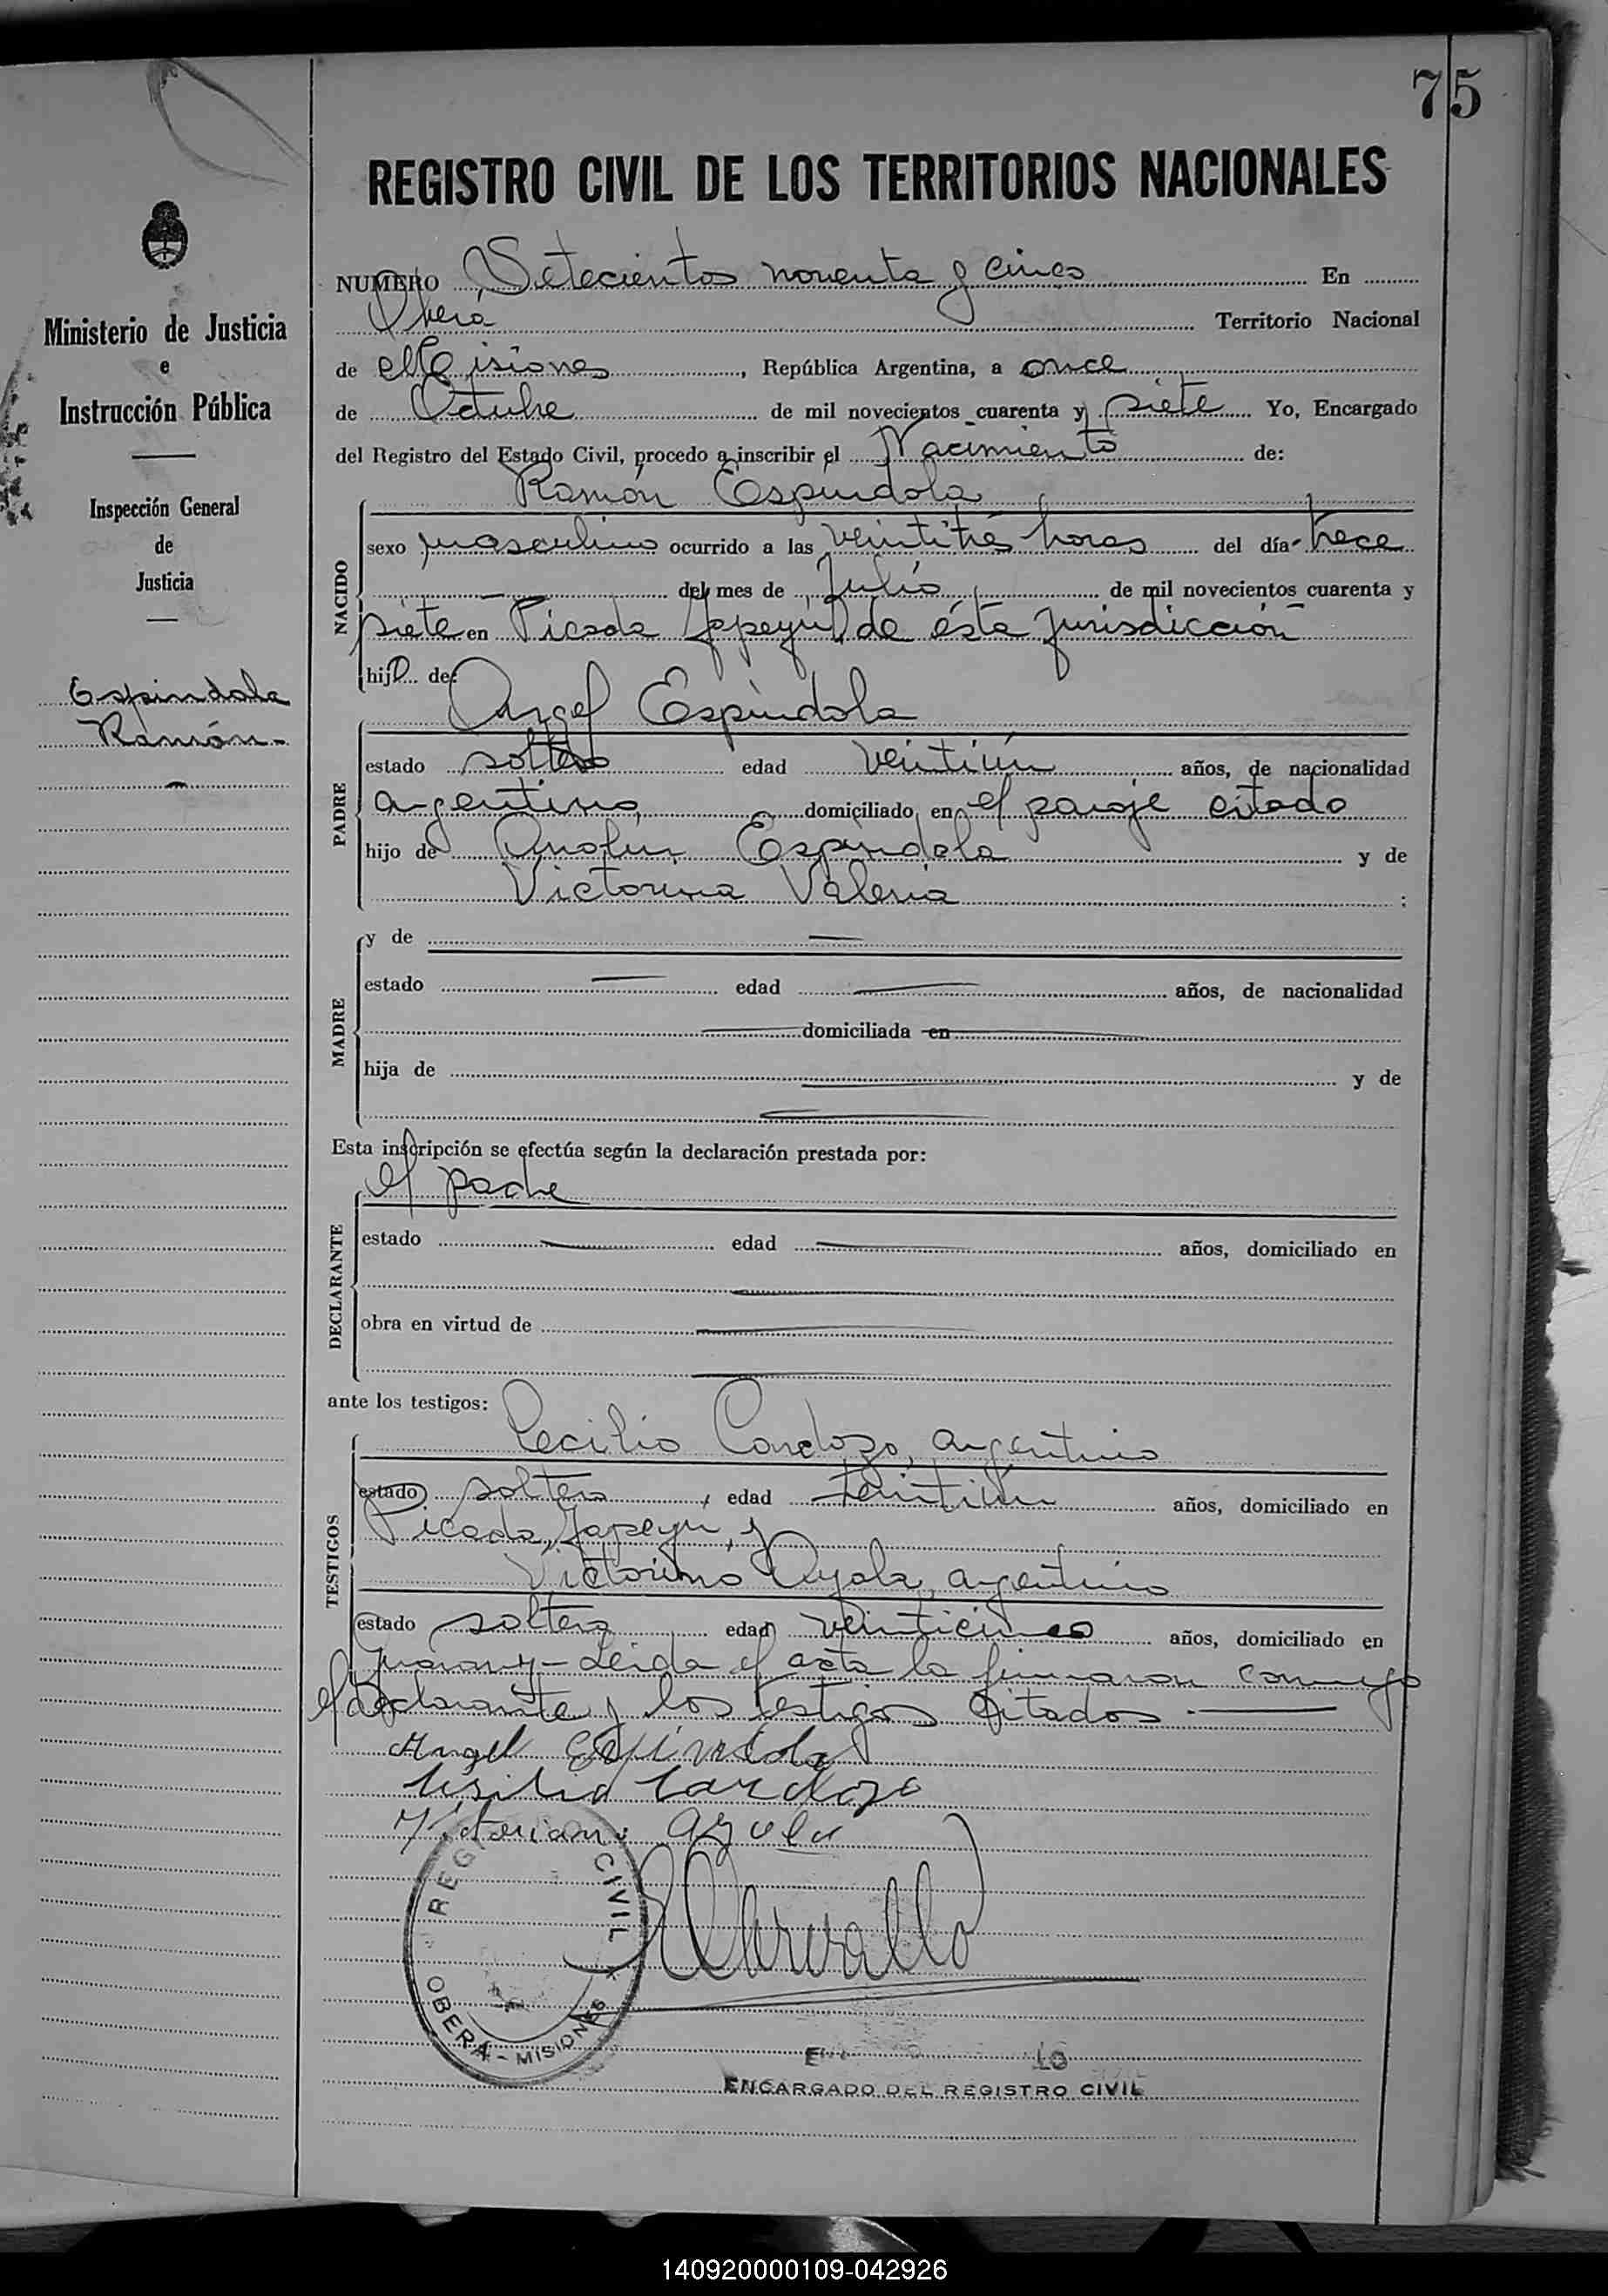 75
REGISTRO CIVIL DE LOS TERRITORIOS NACIONALES
Ministerio de Justicia
e
Instrucción Pública
Inspección General
de
Justicia
Espindola
Ramón.-
NUMERO Setecientos noventa y cinco En
Oberá Territorio Nacional
de Misiones, República Argentina, a once
de Octubre de mil novecientos cuarenta y siete Yo, Encargado
del Registro del Estado Civil, procedo a inscribir el Nacimiento de:
NACIDO
Ramón Espindola
sexo masculino ocurrido a las veintitrés horas del día trece
del mes de Julio de mil novecientos cuarenta y
siete en Picada Yapeyú, de ésta jurisdicción
hijo de:
PADRE
Angel Espindola
estado soltero edad veintiún años, de nacionalidad
argentino domiciliado en el paraje citado
hijo de Antolin Espindola y de
Victorina Valeria ;
MADRE
y de —
estado — edad — años, de nacionalidad
— domiciliada en —
hija de — y de
—
Esta inscripción se efectúa según la declaración prestada por:
DECLARANTE
el padre
estado — edad — años, domiciliado en
—
obra en virtud de —
—
ante los testigos:
TESTIGOS
Cecilio Cardozo, argentino
estado soltero, edad veintiún años, domiciliado en
Picada Yapeyu, y
Victorino Ayala, argentino
estado soltero edad veinticinco años, domiciliado en
Guarany - Leida el acta la firmaron conmigo
el declarante y los testigos citados. —
Angel Espindola
Cardozo
REGISTRO CIVIL
OBERÁ - MISIONES
ENCARGADO DEL REGISTRO CIVIL
140920000109-042926